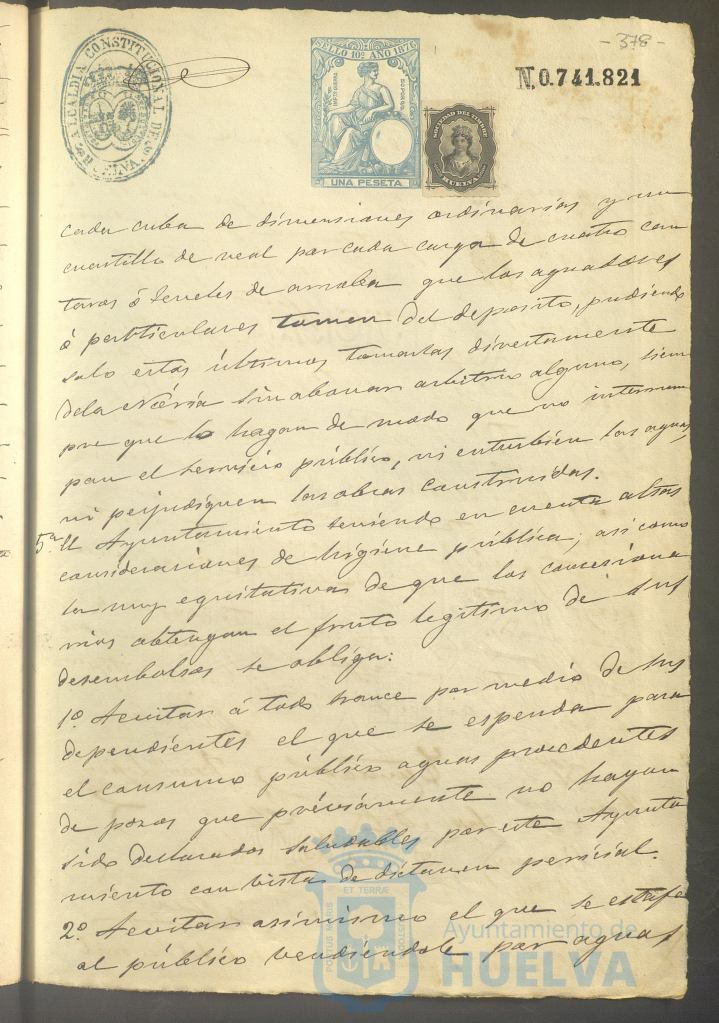 - 378 -
ALCALDIA CONSTITUCIONAL DE HUELVA
SELLO 10º AÑO 1876
UNA PESETA
SOCIEDAD DEL TIMBRE
HUELVA
N. 0.741.821
cada cuba de dimensiones ordinarias y un
cuartillo de real por cada carga de cuatro can
taros ó de arroba que los aguadores
ó particulares tomen del deposito, pudiendo
solo estos últimos tomarlas directamente
dela Nória sin abonar arbitrio alguno, siem
pre que lo hagan de modo que no interrum
pan el servicio público, ni enturbien las aguas,
ni perjudiquen las obras construidas.
5ª El Ayuntamiento teniendo en cuenta altas
consideraciones de higiene pública, asi como
la muy equitativa de que los concesiona
rios obtengan el fruto legitimo de sus
desembolsos se obliga:
1º. A evitar á todo trance por medio de sus
dependientes el que se espenda para
el consumo público aguas procedentes
de pozos que précisamente no hayan
sido declarados saludables por este Ayunta
miento con vista de dictamen pericial.
2º. A evitar asimismo el que se estafe
al público vendiéndole por aguas
PORTUS MARIS ET TERRÆ CUSTODIA
Ayuntamiento de
HUELVA